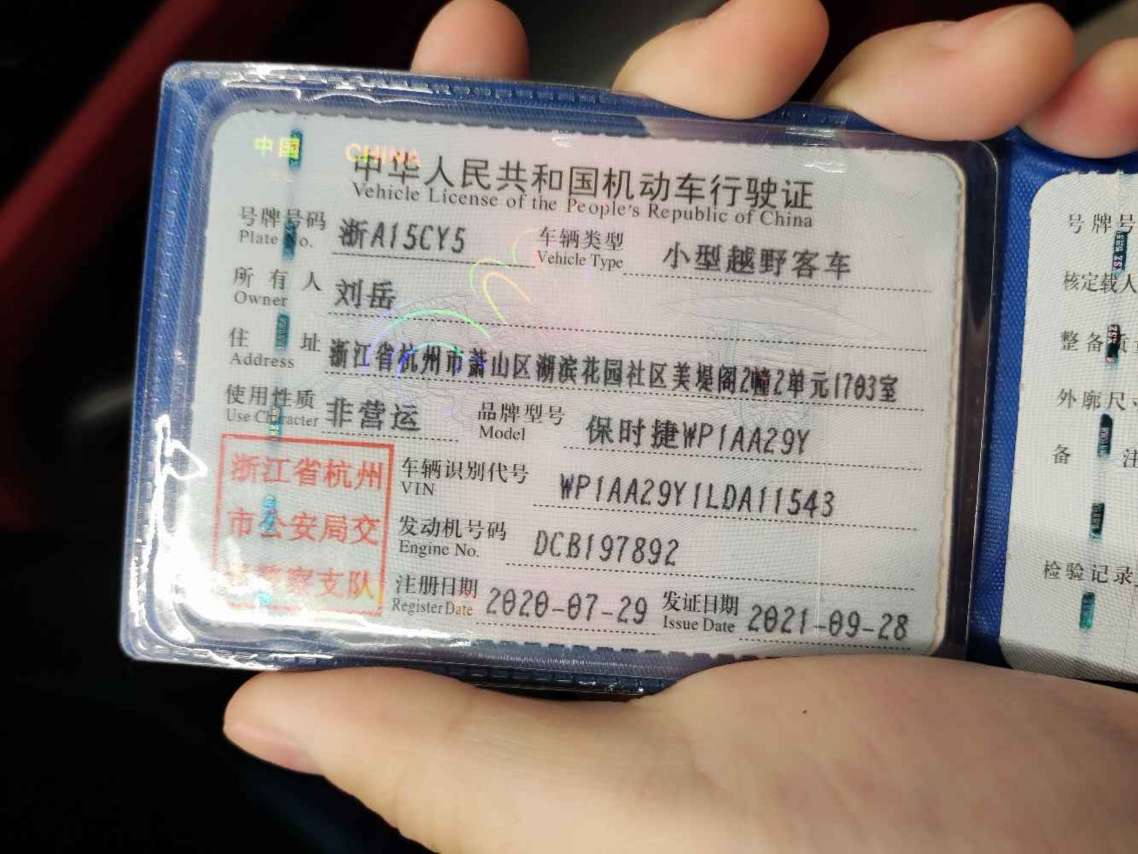 中国 CHINA
中华人民共和国机动车行驶证
Vehicle License of the People's Republic of China
号牌号码 浙A15CY5 车辆类型 小型越野客车
Plate No. Vehicle Type
所有人 刘岳
Owner
住址 浙江省杭州市萧山区湖滨花园社区美堤阁2幢2单元1703室
Address
使用性质 非营运 品牌型号 保时捷WP1AA29Y
Use Character Model
浙江省杭州
市公安局交
警察支队
车辆识别代号 WP1AA29Y1LDA11543
VIN
发动机号码 DCB197892
Engine No.
注册日期 2020-07-29 发证日期 2021-09-28
Register Date Issue Date
号牌号
核定载人
整备质
外廓尺寸
备注
检验记录